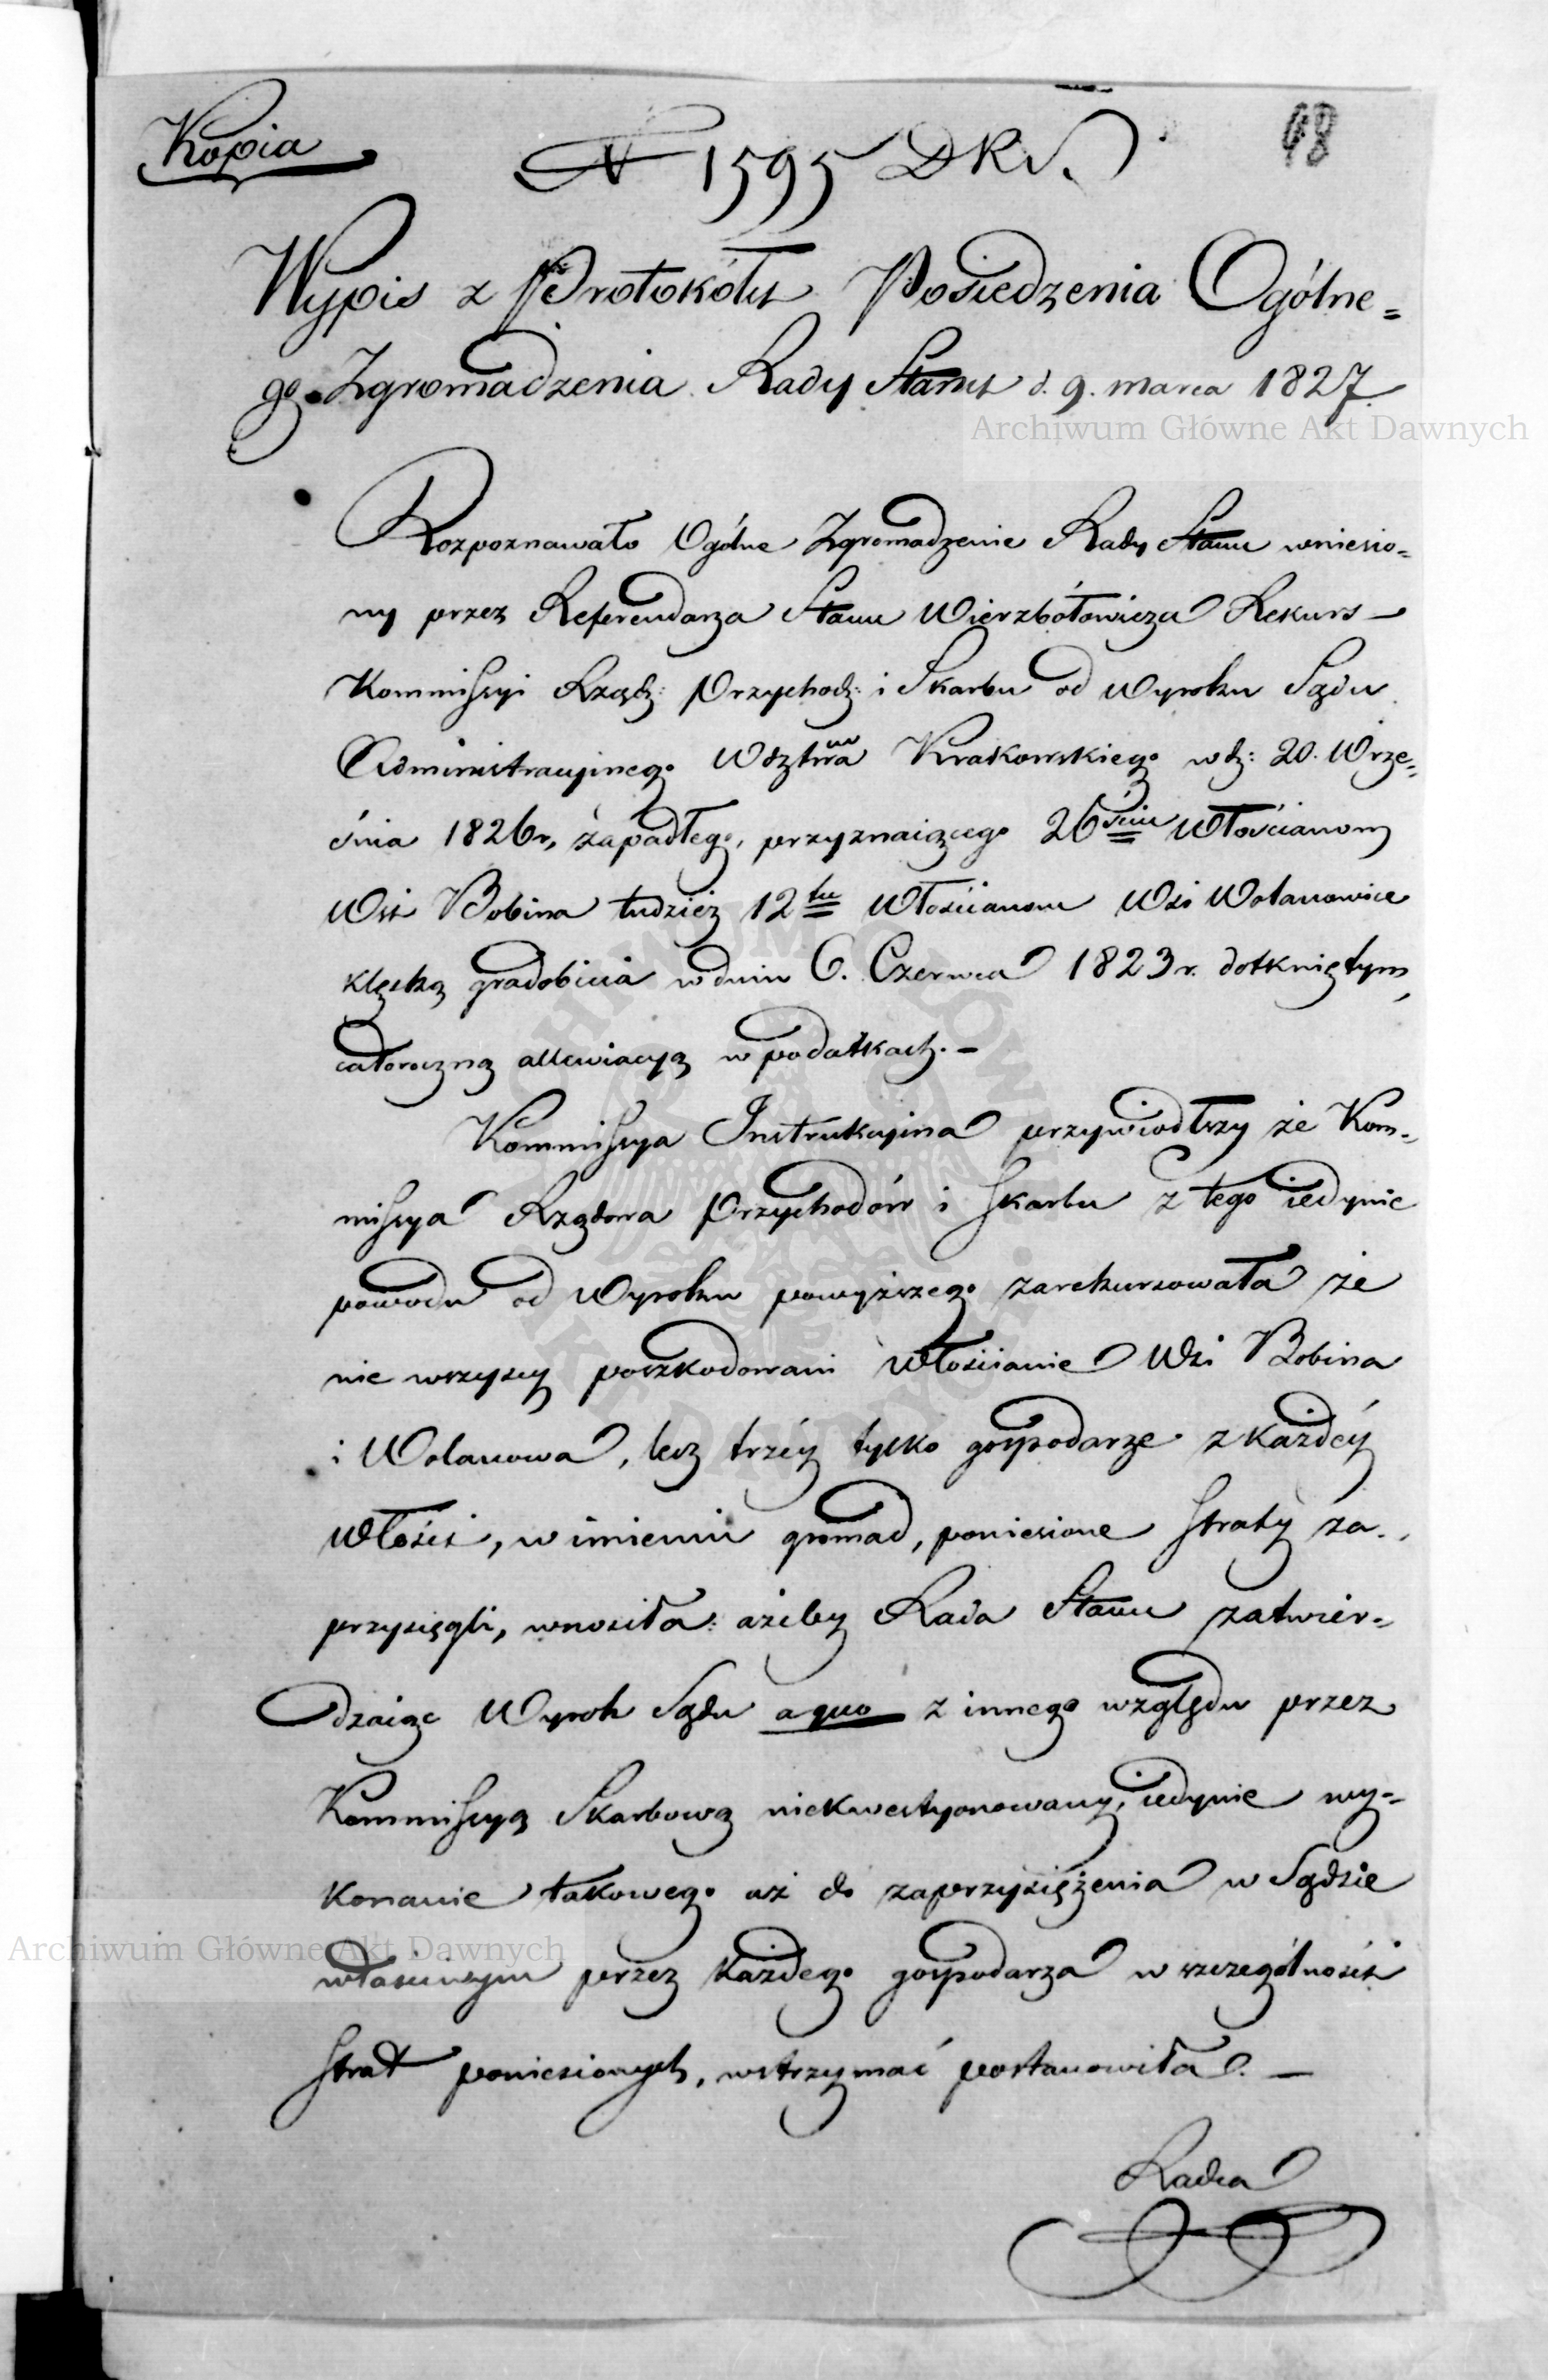 Kopia
N 1595 DRS.
48
Wypis z Protokółu Posiedzenia Ogólne=
go Zgromadzenia Rady Stanu d. 9. marca 1827.
Rozpoznawało Ogólne Zgromadzenie Rady Stanu wniesio=
ny przez Referendarza Stanu Wierzbołowicza Rekurs —
Kommissyi Rządz: Przychod: i Skarbu od Wyroku Sądu
Administracyjnego Wdztwa Krakowskiego w d: 20. Wrze=
śnia 1826 r, zapadłego, przyznaiącego 26ściu Włościanom
Wsi Bobina tudzież 12tu Włościanom Wsi Wolanowice
klęską gradobicia w dniu 6. Czerwca 1823 r. dotkniętym,
całoroczną allewiacyą w podatkach. —
Kommissya Instrukcyina przywiodłszy że Kom=
missya Rządowa Przychodów i Skarbu z tego iedynie
powodu od Wyroku powyższego zarekursowała że
nie wszyscy poszkodowani Włościanie Wsi Bobina
i Wolanowa, lecz trzéy tylko gospodarze z każdéy
Włości, w imieniu gromad, poniesione straty za=
przysięgli, wnosiła: ażeby Rada Stanu zatwier=
dzaiąc Wyrok Sądu a quo z innego względu przez
Kommissyą Skarbową niekwestyonowany, iedynie wy=
konanie takowego aż do zaprzysiężenia w Sądzie
właściwym przez każdego gospodarza w szczególności
strat poniesionych, wstrzymać postanowiła. —
Radca
Archiwum Główne Akt Dawnych
Archiwum Główne Akt Dawnych